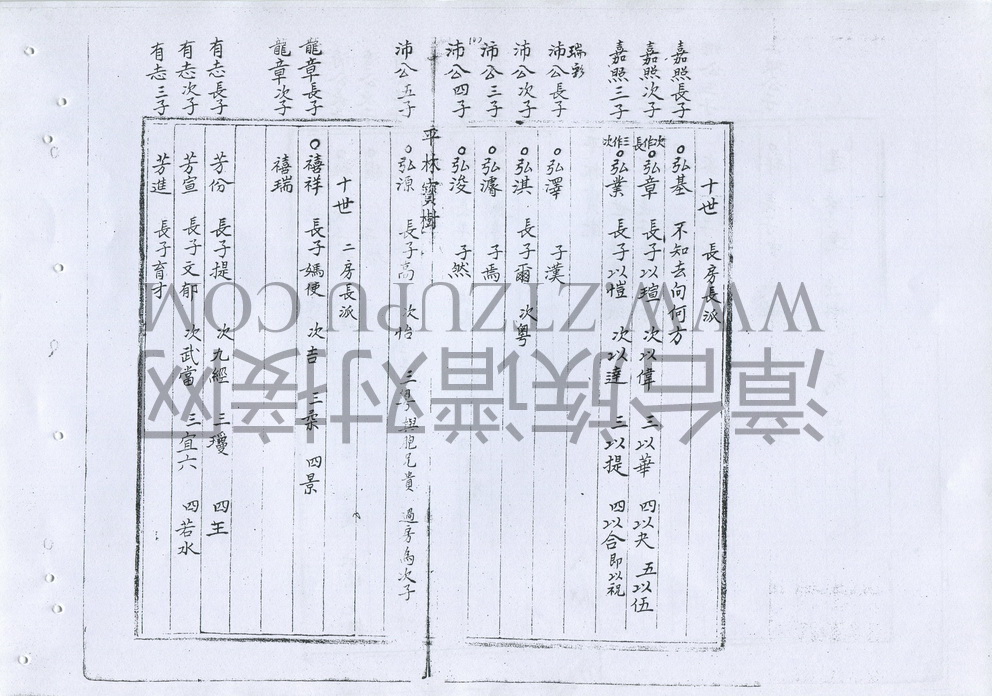 十世 長房長派
嘉照長子 弘基 不知去向何方
嘉照次子 次作長 弘章 長子以瑄 次以偉 三以華 四以夬 五以伍
嘉照三子 三作次 弘業 長子以愷 次以達 三以提 四以合即以祝
瑞彩
沛公長子 弘澤 子漢
沛公次子 弘淇 長子爾 次粵
沛公三子 弘濬 子焉
沛公四子 弘浚 子然
平林寶樹
沛公五子 弘源 長子高 次怡 三 與胞兄貴 過房為次子
十世 二房長派
龍章長子 禧祥 長子媽便 次吉 三朶 四景
龍章次子 禧瑞
有志長子 芳份 長子提 次九經 三瓊 四玉
有志次子 芳宣 長子文郁 次武當 三宜六 四若水
有志三子 芳進 長子育才
漳台族谱对接网
WWW.ZTZUPU.COM